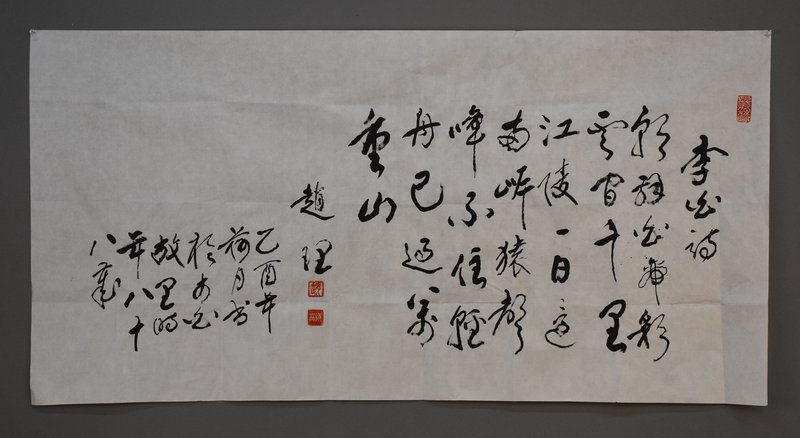 李白詩
朝辞白帝彩
雲間千里
江陵一日還
兩岸猿聲
啼不住輕
舟已過萬
重山
趙理
乙酉年
荷月书
於太白
故里時
年八十
八歲